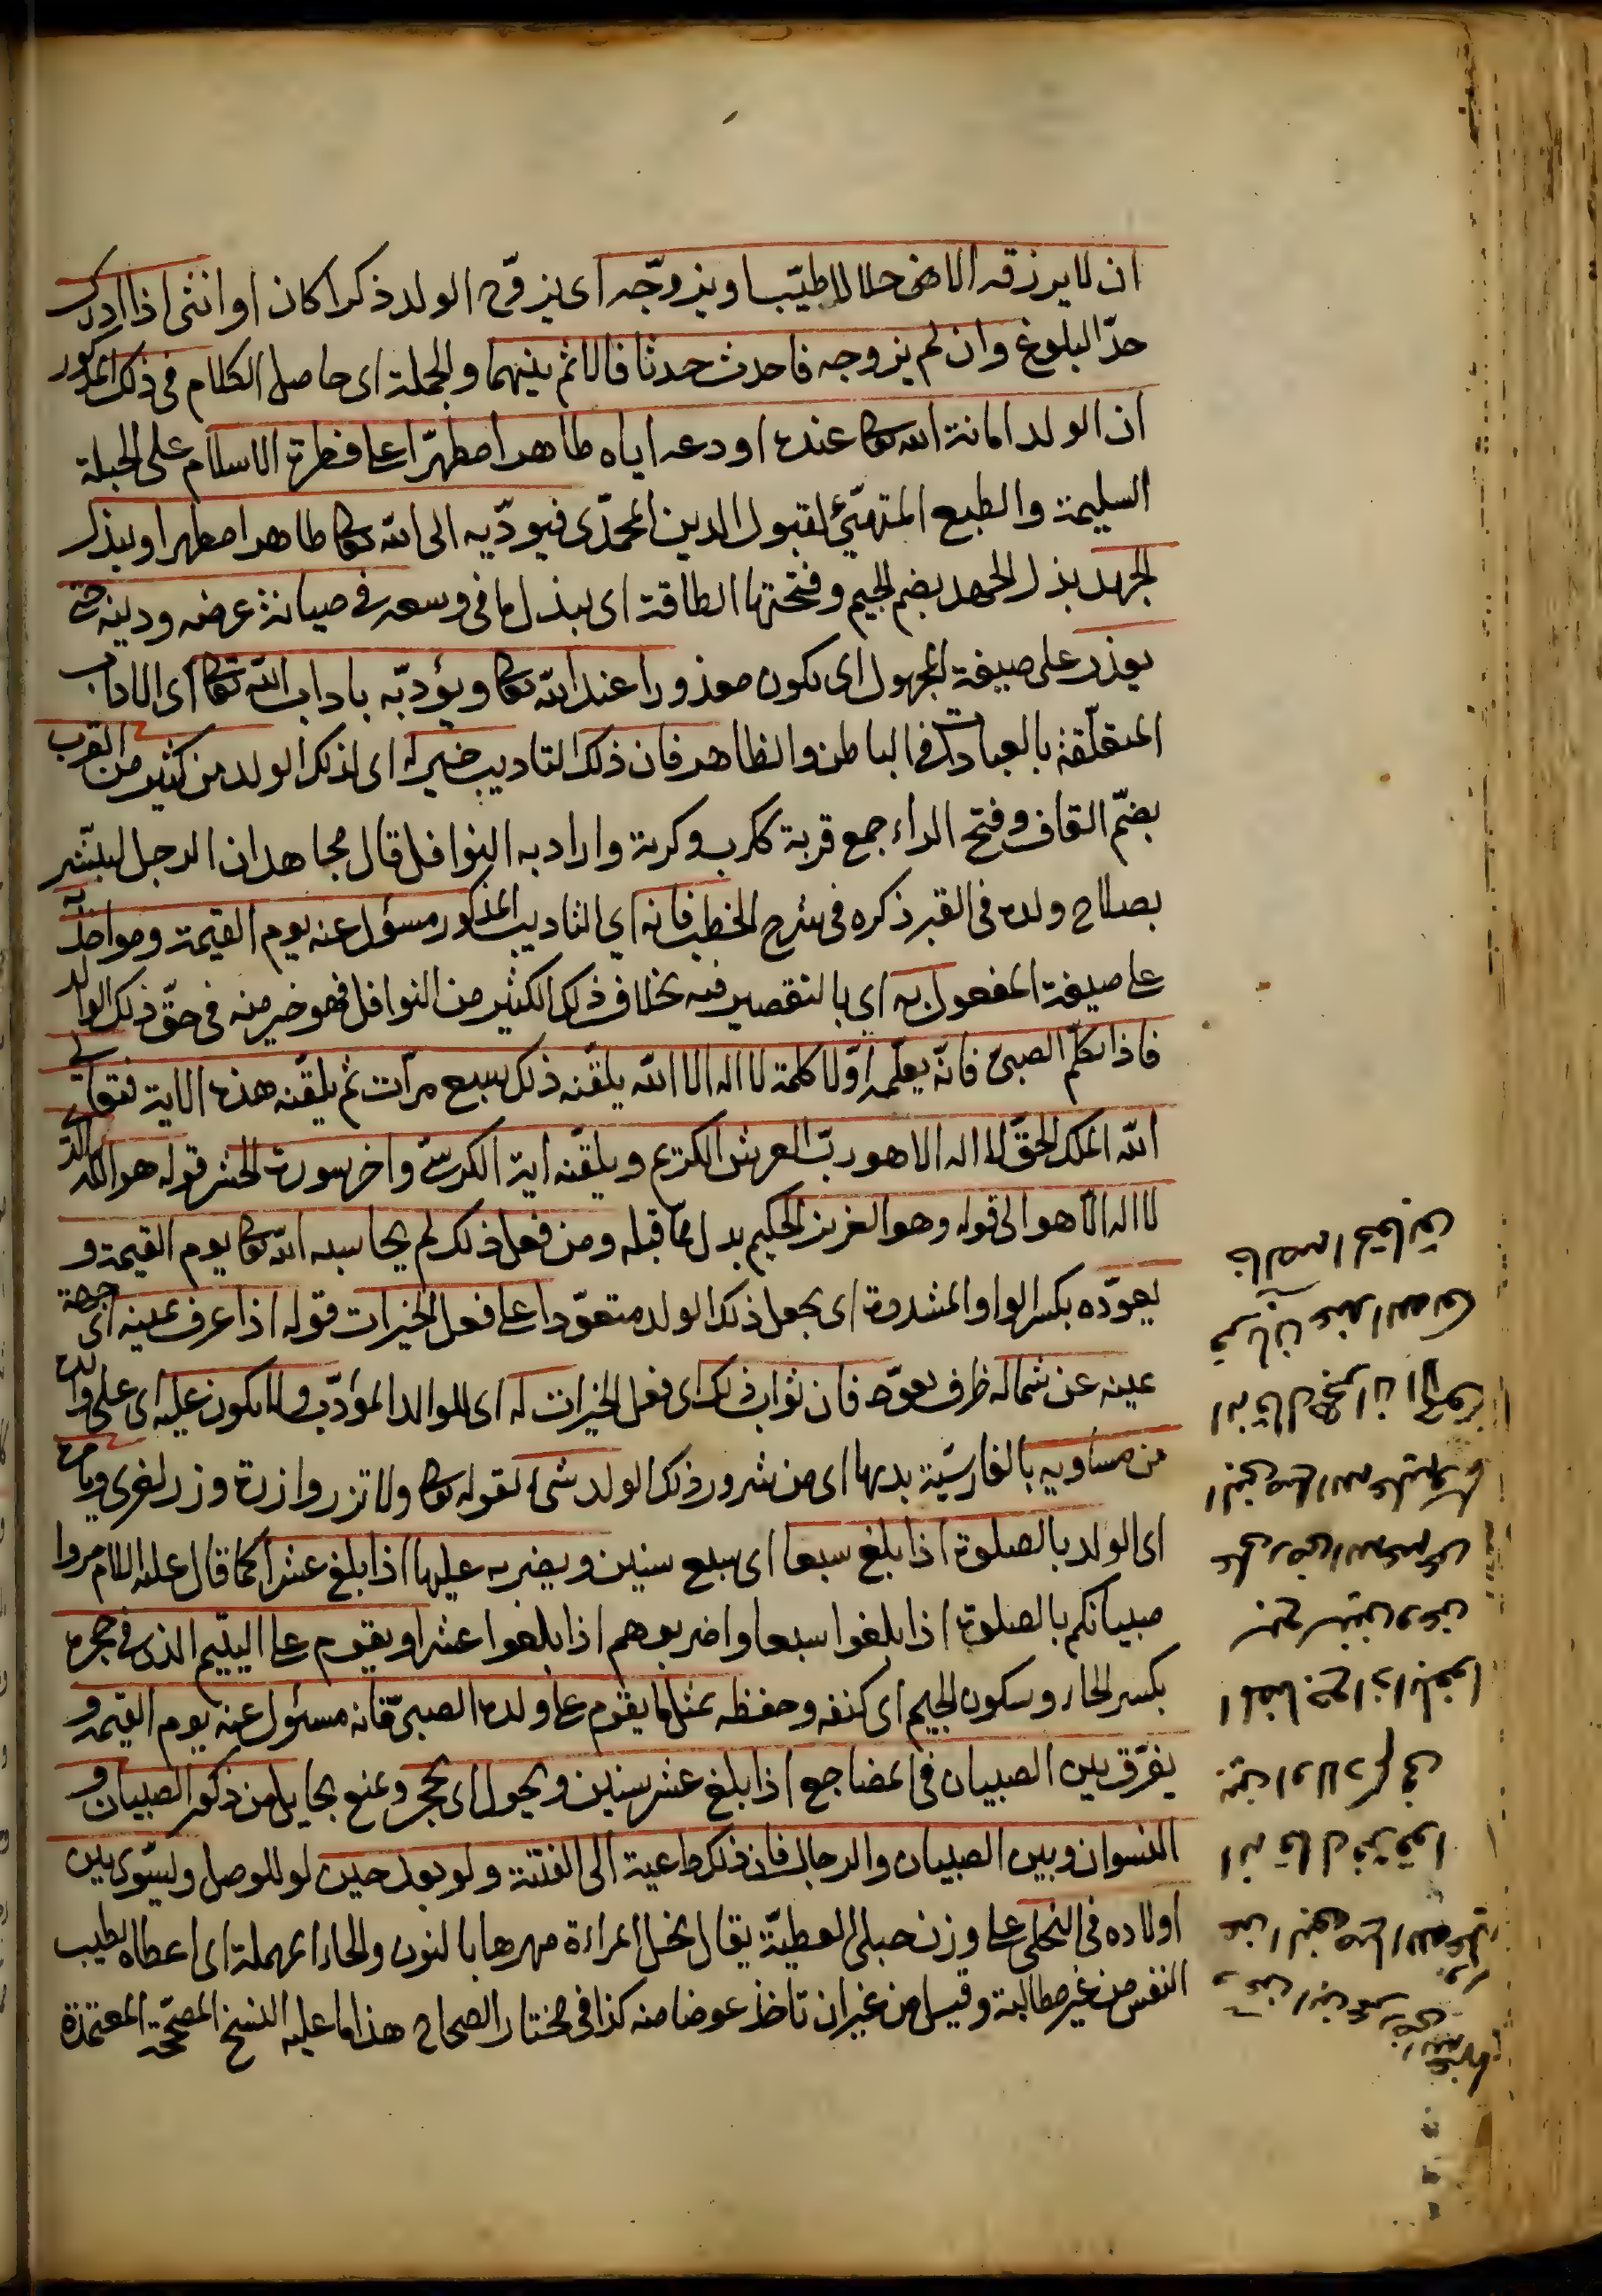 ان لا يرزقه الا من حلالا طيبا ويزوّجه اى يزوّج الولد ذكرا كان او انثى اذا ادرك
حدّ البلوغ وان لم يزوجه فاحدث حدثا فالاثم بينهما والجملة اى حاصل الكلام فى ذلك المذكور
ان الولد امانة الله تعا عنده اودعه اياه طاهرا مطهّرا على فطرة الاسلام على الجبلة
السليمة والطبع المتهيّئ لقبول الدين المحمّدى فيودّيه الى الله تعا طاهرا مطهرا ويبذل
الجهد بذل الجهد بضم الجيم وفتحتها الطاقة اى يبذل ما فى وسعه فى صيانة عرضه ودينه حتى
يعذر على صيغة المجهول اى يكون معذورا عند الله تعا ويؤدّبه باداب الله تعا اى الاداب
المتعلّقة بالعبادات فى الباطن والظاهر فان ذلك التاديب خير له اى لذلك الولد من كثير من القرب
بضمّ القاف وفتح الراء جمع قربة ككرب وكربة واراد به النوافل قال مجاهد ان الرجل ليبشّر
بصلاح ولده فى القبر ذكره فى شرح الخطب فانه اي التاديب المذكور مسؤل عنه يوم القيمة ومواخذ به
على صيغة المفعول به اي بالتقصير فيه بخلاف ذلك الكثير من النوافل فهو خير منه فى حقّ ذلك الوالد
فاذا تكلّم الصبىّ فانّه يعلّمه اوّلا كلمة لا اله الا الله يلقّنه ذلك سبع مرّات ثم يلقّنه هذه الاية فتعالى
الله الملك الحقّ لا اله الا هو ربّ العرش الكريم ويلقّنه اية الكرسى واخر سورة الحشر قوله هو الله الذى
لا اله الّا هو الى قوله وهو العزيز الحكيم بدل مما قبله ومن فعل ذلك لم يحاسبه الله تعا يوم القيمة و
يعوّده بكسر الواو المشددة اى يجعل ذلك الولد متعوّدا على فعل الخيرات قوله اذا عرف يمينه اى جهة
يمينه عن شماله ظرف يعوّده فان ثواب ذلك اى فعل الخيرات له اى للوالد المؤدّب ولا يكون عليه اى على والده
من مساويه بالفارسيّة بديها اى من شرور ذلك الولد شىء لقوله تعا ولا تزر وازرة وزر اخرى ويامره
اى الولد بالصلوة اذا بلغ سبعا اى سبع سنين ويضربه عليها اذا بلغ عشرا كما قال عليه السلام مروا
صبيانكم بالصلوة اذا بلغوا سبعا واضربوهم اذا بلغوا عشرا ويقوم على اليتيم الذى فى حجره
بكسر الحاء وسكون الجيم اى كنفه وحفظه بمثل ما يقوم على ولده الصبىّ فانه مسئول عنه يوم القيمة و
يفرّق بين الصبيان فى المضاجع اذا بلغ عشر سنين ويحول اى يحجر ويمنع بحايل من ذكور الصبيان و
النسوان وبين الصبيان والرجال فان ذلك داعية الى الفتنة ولو بعد حين لو للوصل ويسّوى بين
اولاده فى النحلى على وزن حبلى العطيّة يقال نحل المراءة مهرها بالنون والحاء المهملة اى اعطاه بطيب
النفس من غير مطالبة وقيل من غير ان تاخذ عوضا منه كذا فى مختار الصحاح هذا ما عليه النسخ المصحّحة المعتمدة
عن النبى صلى الله عليه
انه قال فرّقوا
بين اولادكم فى
المضاجع اذا بلغوا
سبع سنين وعن
على رضى الله عنه عن
النبى صلى الله عليه وسلم